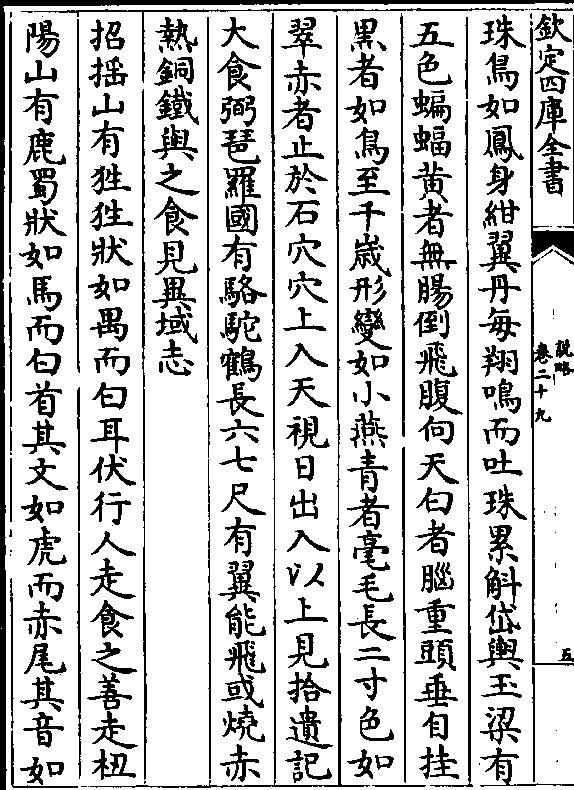 欽定四庫全書
說略
卷二十九
五
珠鳥如鳳身紺翼丹每翔鳴而吐珠累斛岱輿玉梁有
五色蝙蝠黃者無腸倒飛腹向天白者腦重頭垂自挂
黒者如鳥至千歲形變如小燕青者毫毛長二寸色如
翠赤者止於石穴穴上入天視日出入以上見拾遺記
大食弼琶羅國有駱駝鶴長六七尺有翼能飛或燒赤
熱銅鐵與之食見異域志
招揺山有狌狌狀如禺而白耳伏行人走食之善走杻
陽山有鹿蜀狀如馬而白首其文如虎而赤尾其音如